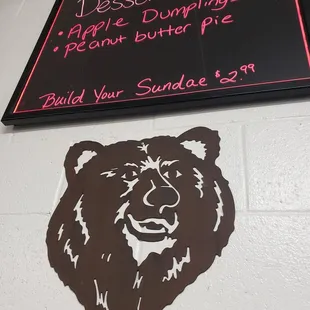 • Apple Dumplings
• Peanut butter Pie
Build Your Sundae $2.99